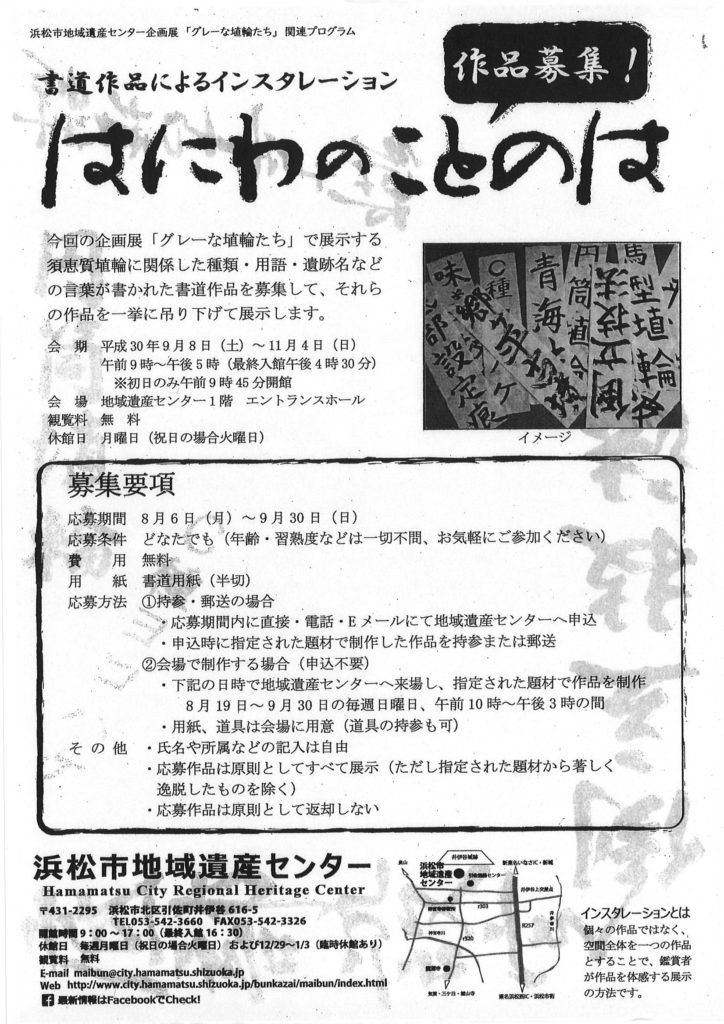 浜松市地域遺産センター企画展「グレーな埴輪たち」関連プログラム
作品募集！
書道作品によるインスタレーション
はにわのことのは
今回の企画展「グレーな埴輪たち」で展示する
須恵質埴輪に関係した種類・用語・遺跡名など
の言葉が書かれた書道作品を募集して、それら
の作品を一挙に吊り下げて展示します。
会　期　平成30年9月8日（土）～11月4日（日）
午前9時～午後5時（最終入館午後4時30分）
※初日のみ午前9時45分開館
会　場　地域遺産センター1階　エントランスホール
観覧料　無　料
休館日　月曜日（祝日の場合火曜日）
青海
円筒埴
馬型埴輪
倒立技法
設定痕
イメージ
募集要項
応募期間　8月6日（月）～9月30日（日）
応募条件　どなたでも（年齢・習熟度などは一切不問、お気軽にご参加ください）
費　　用　無料
用　　紙　書道用紙（半切）
応募方法　①持参・郵送の場合
・応募期間内に直接・電話・Eメールにて地域遺産センターへ申込
・申込時に指定された題材で制作した作品を持参または郵送
②会場で制作する場合（申込不要）
・下記の日時で地域遺産センターへ来場し、指定された題材で作品を制作
8月19日～9月30日の毎週日曜日、午前10時～午後3時の間
・用紙、道具は会場に用意（道具の持参も可）
そ の 他　・氏名や所属などの記入は自由
・応募作品は原則としてすべて展示（ただし指定された題材から著しく
逸脱したものを除く）
・応募作品は原則として返却しない
浜松市地域遺産センター
Hamamatsu City Regional Heritage Center
〒431-2295　浜松市北区引佐町井伊谷616-5
TEL053-542-3660　FAX053-542-3326
開館時間 9：00～17：00（最終入館16：30）
休館日　毎週月曜日（祝日の場合火曜日）および12/29～1/3（臨時休館あり）
観覧料　無料
E-mail maibun@city.hamamatsu.shizuoka.jp
Web http://www.city.hamamatsu.shizuoka.jp/bunkazai/maibun/index.html
最新情報はFacebookでCheck!
井伊谷城跡
新東名いなさIC・新城
奥山
浜松市
地域遺産
センター
引佐健康センター
井伊谷上交差点
r303
R257
r320
龍潭寺
気賀・三ケ日・舘山寺
東名浜松西IC・浜松市街
インスタレーションとは
個々の作品ではなく、
空間全体を一つの作品
とすることで、鑑賞者
が作品を体感する展示
の方法です。